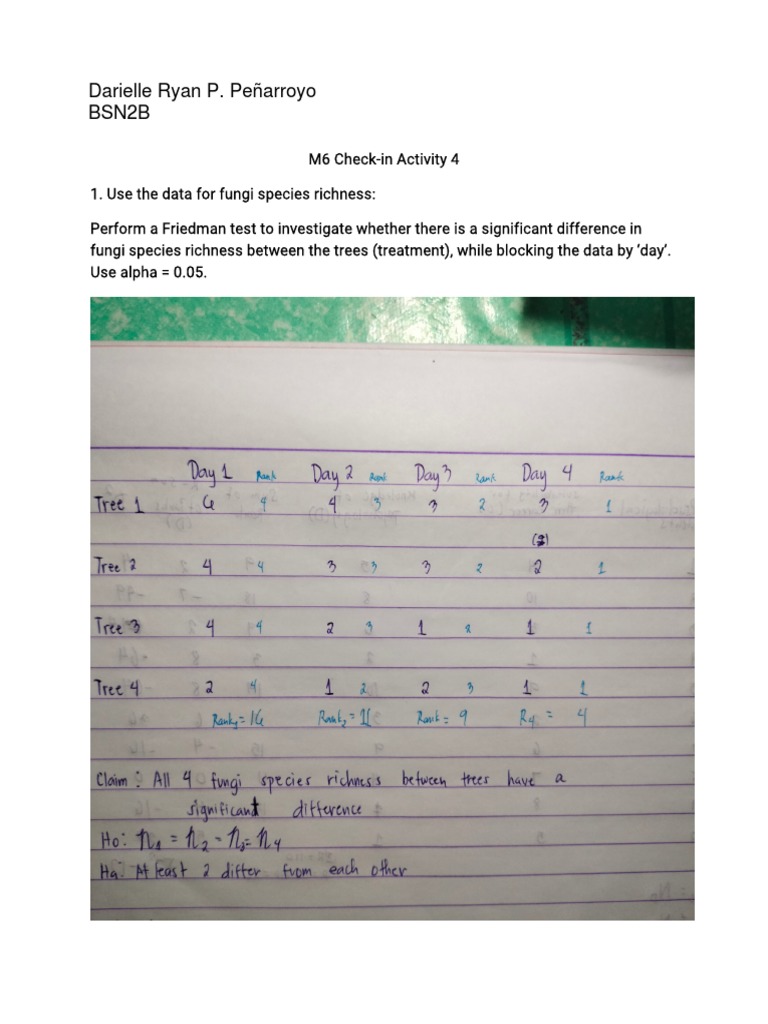 Darielle Ryan P. Peñarroyo
BSN2B
M6 Check-in Activity 4
1. Use the data for fungi species richness:
Perform a Friedman test to investigate whether there is a significant difference in
fungi species richness between the trees (treatment), while blocking the data by ‘day’.
Use alpha = 0.05.
Day 1 Rank Day 2 Rank Day 3 Rank Day 4 Rank
Tree 1 6 4 4 3 3 2 3 1
Tree 2 4 4 3 3 3 2 2 1
Tree 3 4 4 2 3 1 2 1 1
Tree 4 2 4 1 2 2 3 1 1
Rank1 = 16 Rank2 = 11 Rank = 9 R4 = 4
Claim: All 4 fungi species richness between trees have a
significant difference
Ho: n1 = n2 = n3 = n4
Ha: At least 2 differ from each other